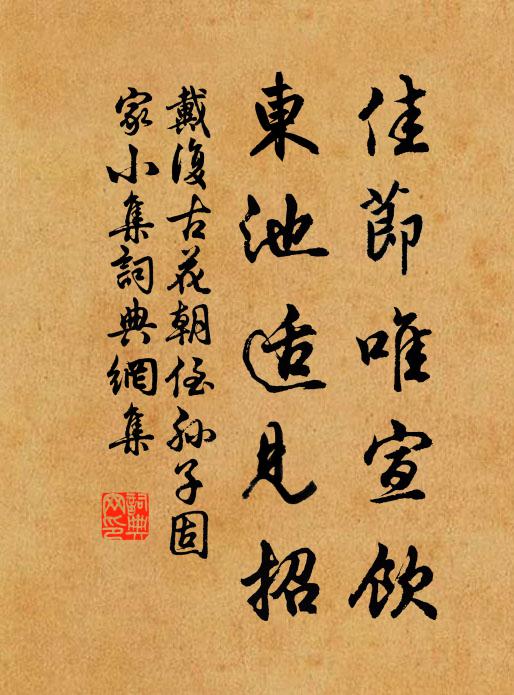 佳節唯宣飲
東池適見招
戴復古花朝侄孙子固
家小集詞典網集
詞典網印